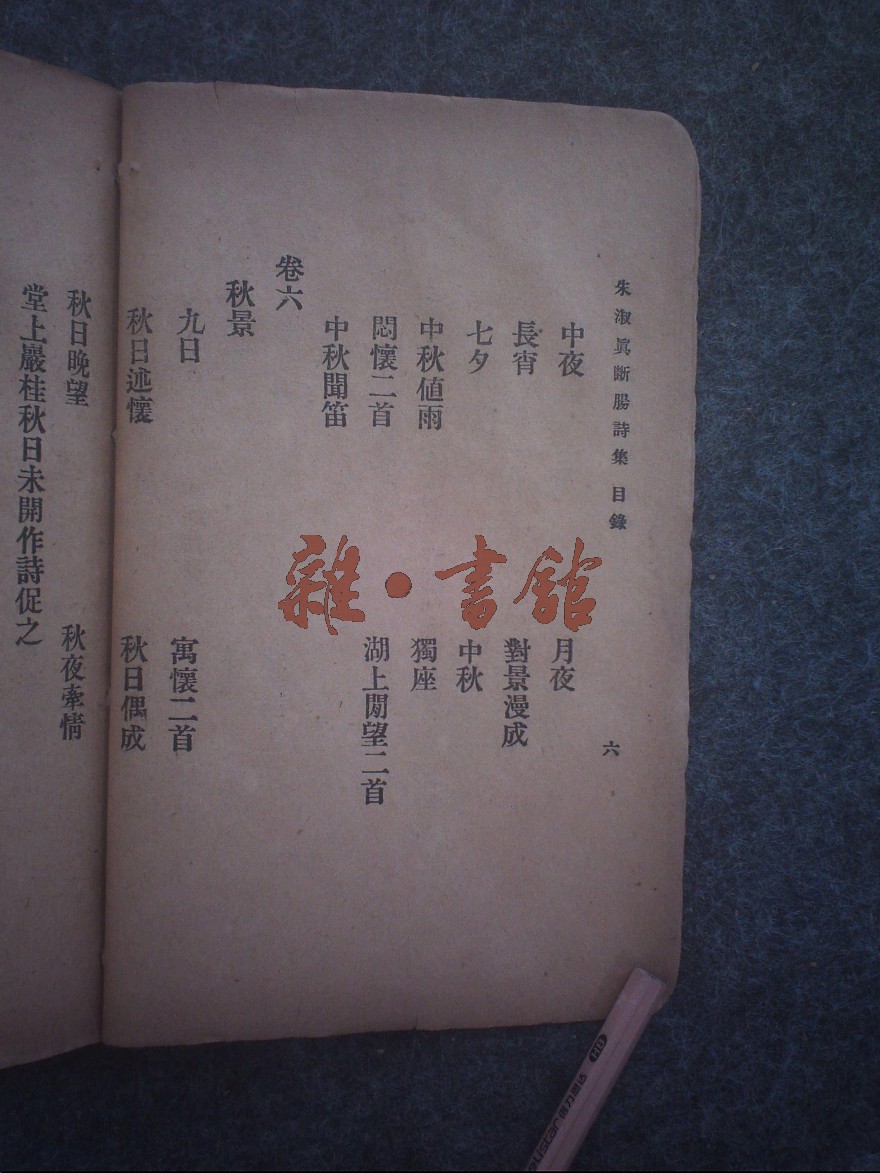 朱淑眞斷腸詩集 目錄 六
中夜 月夜
長宵 對景漫成
七夕 中秋
中秋値雨 獨座
悶懷二首 湖上閒望二首
中秋聞笛
卷六
秋景
九日 寓懷二首
秋日述懷 秋日偶成
秋日晚望 秋夜牽情
堂上巖桂秋日未開作詩促之
雜·書館
HB